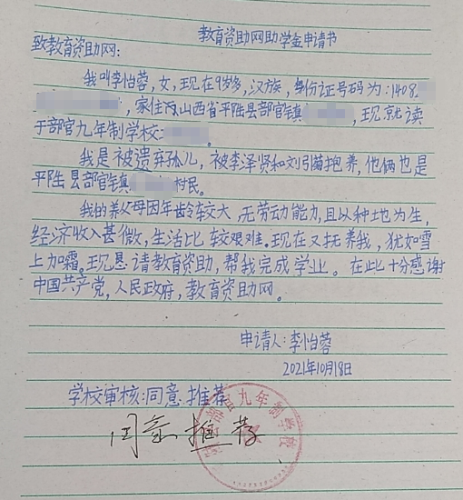 教育资助网助学金申请书
致教育资助网：
我叫李怡蓉，女，现在9岁多，汉族，身份证号码为：1408
，家住山西省平陆县部官镇，现就读
于部官九年制学校
我是被遗弃孤儿，被李泽贤和刘引猫抱养，他俩也是
平陆县部官镇村民。
我的养父母因年龄较大，无劳动能力，且以种地为生，
经济收入甚微，生活比较艰难。现在又抚养我，犹如雪
上加霜。现恳请教育资助，帮我完成学业。在此十分感谢
中国共产党，人民政府，教育资助网。
申请人：李怡蓉
2021年10月18日
学校审核：同意推荐
同意推荐
官九年制学校